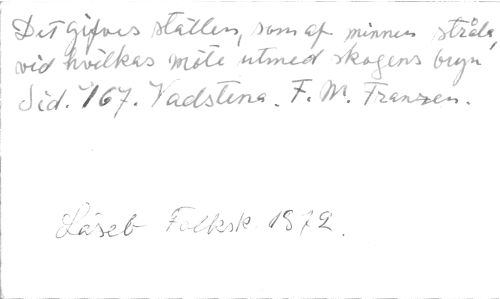 Det gifves ställen, som af minnen stråla,
vid hvilkas möte utmed skogens bryn
Sid. 167. Vadstena. F. M. Franzen.
Läseb Folksk. 1872.